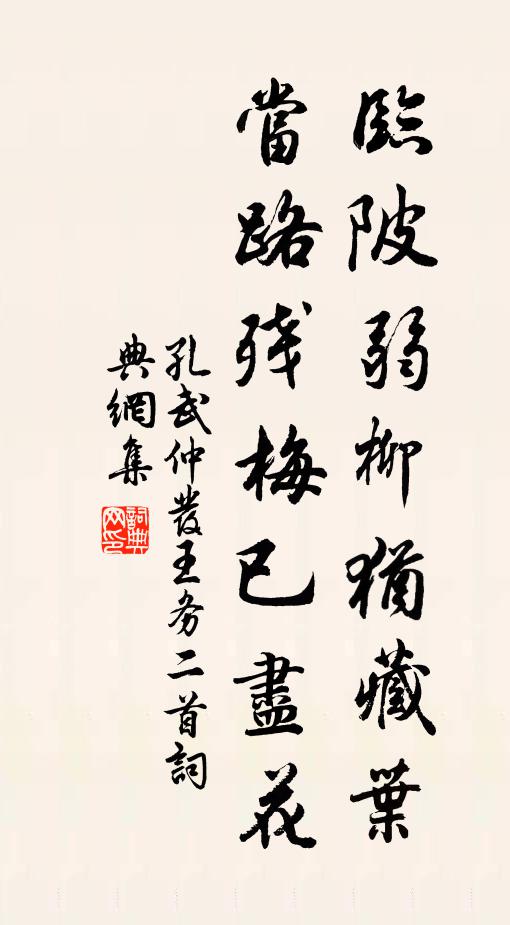 臨陂弱柳猶藏葉
當路殘梅已盡花
孔武仲發王务二首詞
典網集
詞典网印